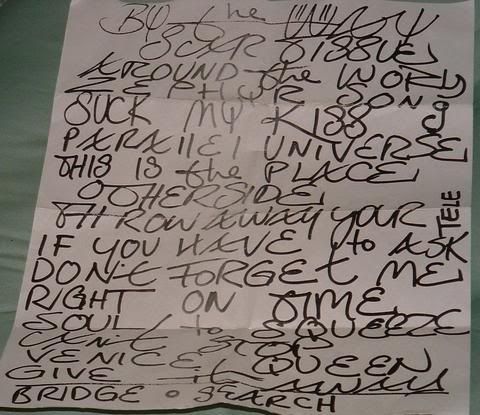 BY the WAY
SCAR TISSUE
AROUND the WORLD
ZEPHYR SONG
SUCK MY KISS
PARALLEL UNIVERSE
THIS IS the PLACE
OTHERSIDE
THROW AWAY YOUR TELE
IF YOU HAVE to ASK
DON't FORGET ME
RIGHT ON TIME
SOUL to SQUEEZE
CAN't STOP
VENICE QUEEN
GIVE it AWAY
BRIDGE • SEARCH